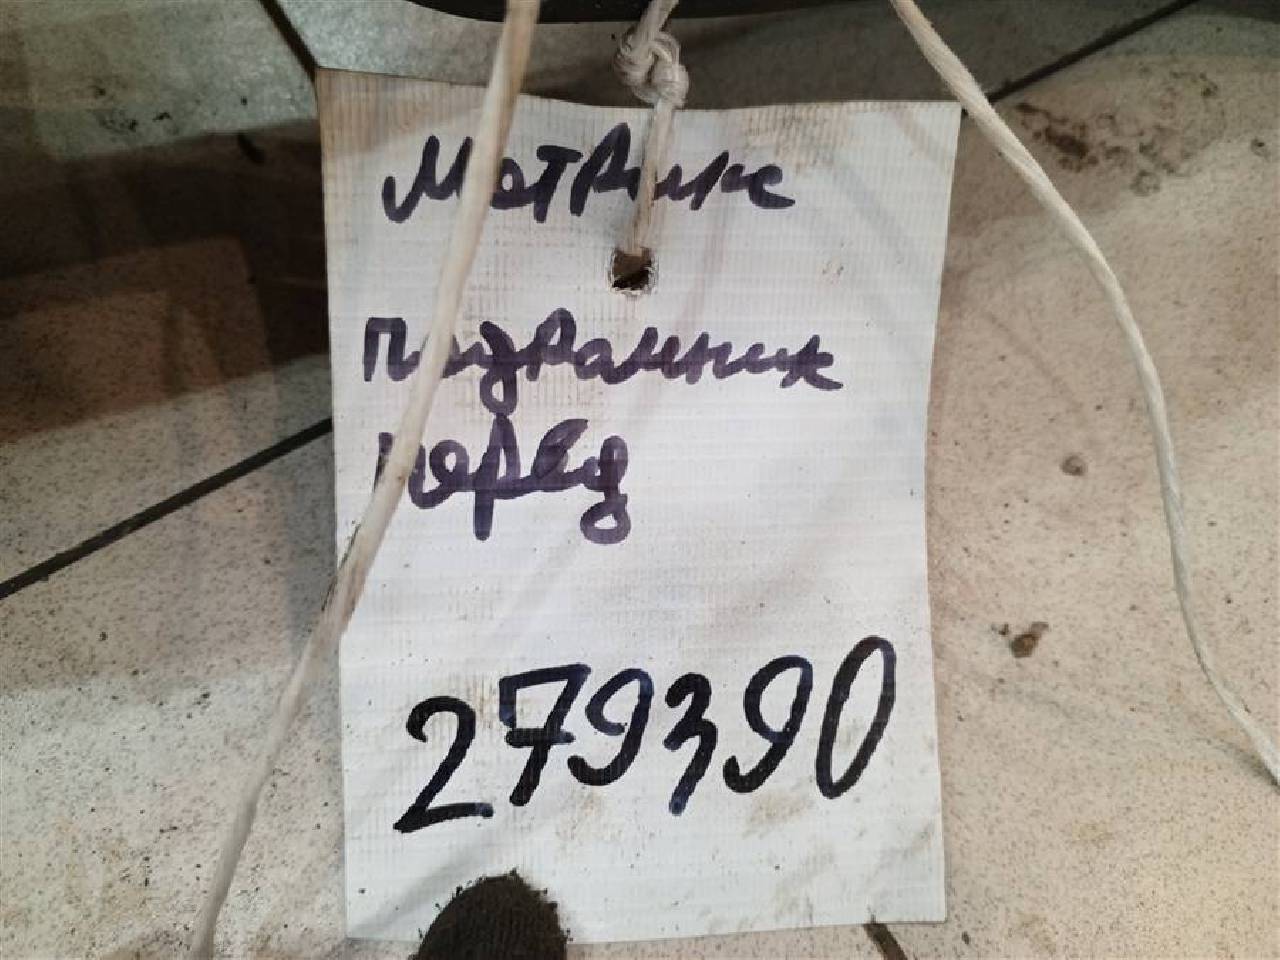 Матрикс
Подрамник
перед
279390